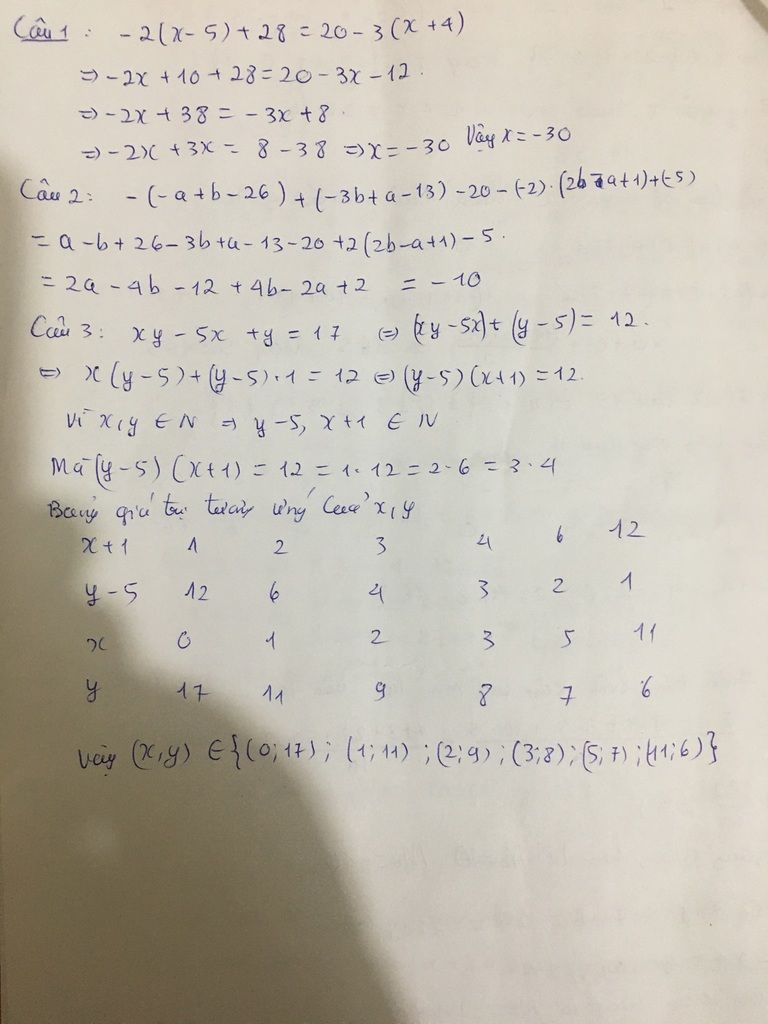 Câu 1 : -2(x-5)+28 = 20-3(x+4)
⇒ -2x+10+28=20-3x-12.
⇒ -2x+38 = -3x+8.
⇒ -2x+3x = 8-38 ⇒ x=-30 Vậy x=-30
Câu 2: -(-a+b-26)+(-3b+a-13)-20-(-2).(2b-a+1)+(-5)
= a-b+26-3b+a-13-20+2(2b-a+1)-5.
= 2a-4b-12+4b-2a+2 = -10
Câu 3: xy-5x+y=17 ⇔ (xy-5x)+(y-5)= 12.
⇔ x(y-5)+(y-5).1=12 ⇔ (y-5)(x+1)=12.
Vì x,y ∈ N ⇒ y-5, x+1 ∈ N
Mà (y-5)(x+1)=12=1.12=2.6=3.4
Bảng giá trị tương ứng của x,y
x+1 1 2 3 4 6 12
y-5 12 6 4 3 2 1
x 0 1 2 3 5 11
y 17 11 9 8 7 6
Vậy (x,y) ∈ {(0;17); (1;11);(2;9);(3;8);(5;7);(11;6)}